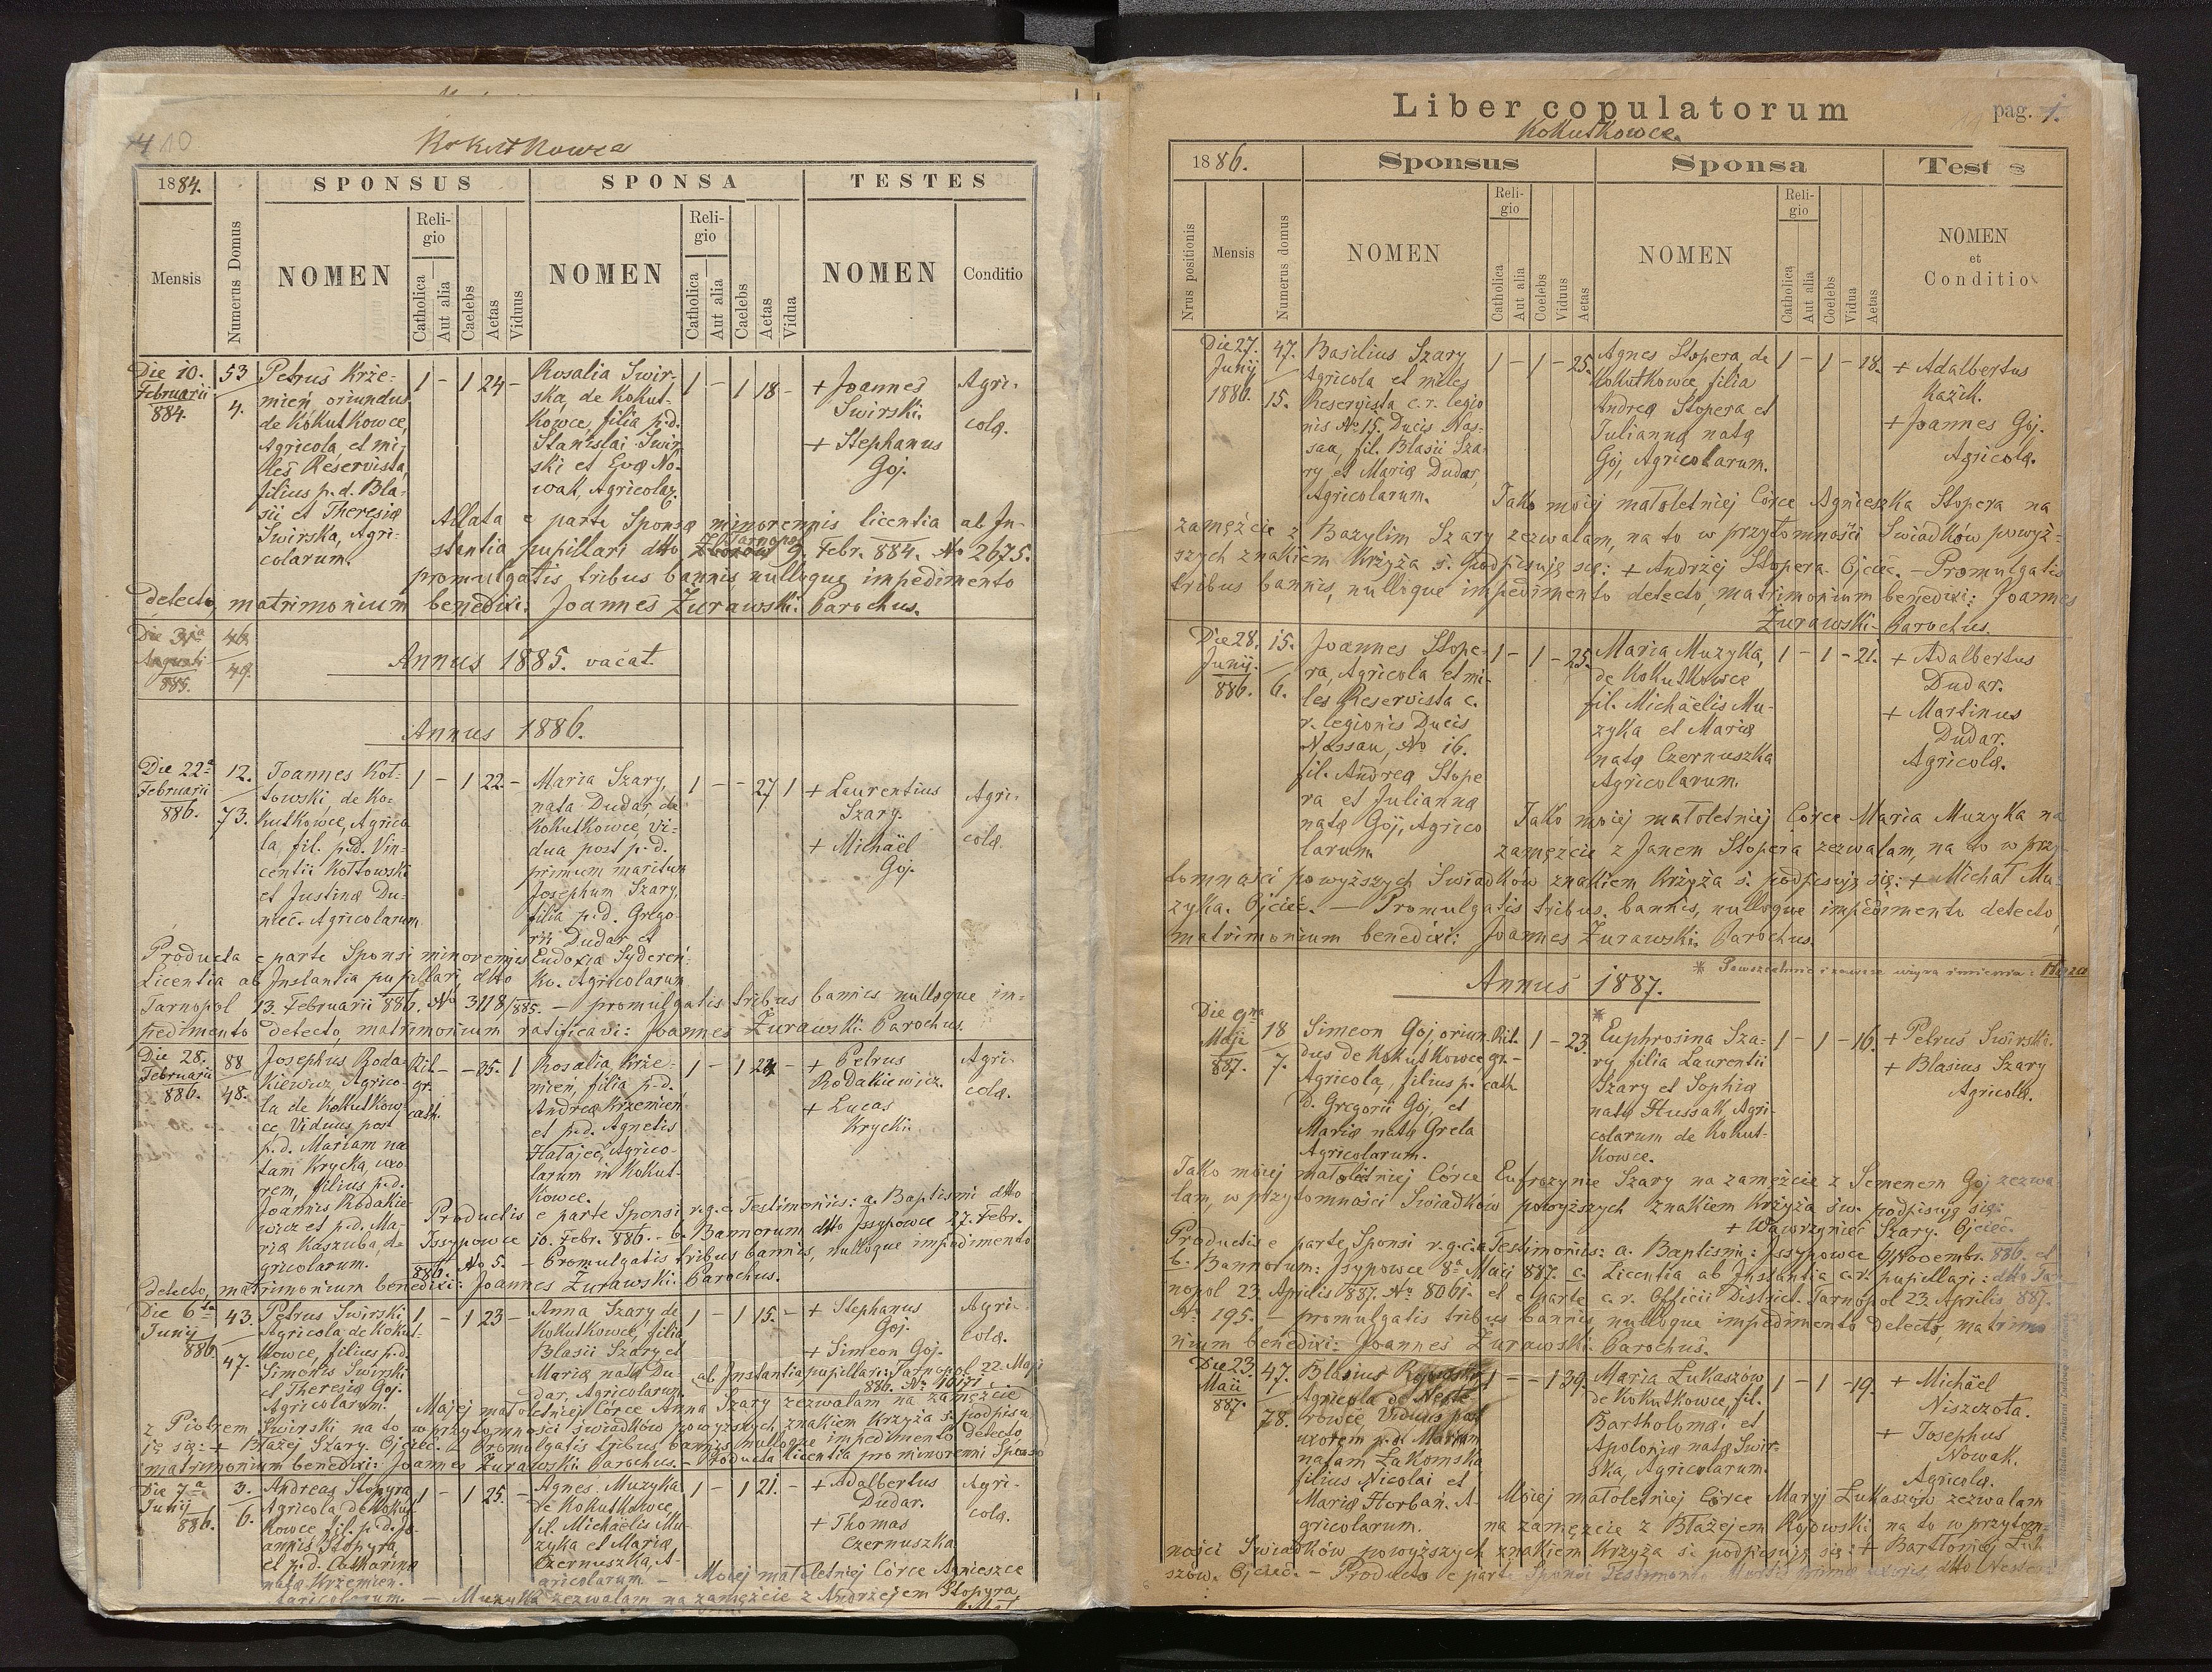 10
Kokutkowce
1884.
SPONSUS
SPONSA
TESTES
Mensis
Numerus Domus
NOMEN
Religio
Catholica
Aut alia
Caelebs
Aetas
Viduus
NOMEN
Religio
Catholica
Aut alia
Caelebs
Aetas
Vidua
NOMEN
Conditio
Die 10.
Februarii
884.
53
4.
Petrus Krze-
mień oriundus
de Kokutkowce,
Agricola et mi-
les Reservista,
filius p.d. Bla-
sii et Theresiæ
Swirska, Agri-
colarum.
1 – 1 24 –
Rosalia Swir-
ska, de Kokut-
kowce, filia p.d.
Stanislai Swir
ski et Eva No-
wak, Agricolar.
1 – 1 18 –
+ Joannes
Swirski.
+ Stephanus
Goj.
Agri-
colæ.
Allata e parte Sponsæ minorennis licentia ab In-
stantia pupillari dtto Tarnopol 9. Febr. 884. No 2675.
promulgatis tribus bannis, nulloque impedimento
detecto, matrimonium benedixi. Joannes Żurawski. Parochus.
Die 31a
Augusti
885.
46.
49.
Annus 1885. vacat.
Annus 1886.
Die 22a
Februarii
886.
12.
73.
Joannes Koł-
towski, de Ko-
kutkowce, Agrico
la, fil. p.d. Vin-
centii Kołtowski
et Justinæ Du-
niec. Agricolarum
1 – 1 22 –
Maria Szary,
nata Dudar, de
Kokutkowce, vi-
dua post p.d.
primum maritum
Josephum Szary,
filia p.d. Grego-
rii Dudar et
Eudoxia Syderen-
ko. Agricolarum
1 – – 27 1
+ Laurentius
Szary.
+ Michaël
Goj.
Agri-
colæ.
Producta e parte Sponsi minorennis
Licentia ab Instantia pupillari, dtto
Tarnopol 13. Februarii 886. No 3118/885. – promulgatis tribus bannis nulloque im-
pedimento detecto, matrimonium ratificavi: Joannes Żurawski. Parochus.
Die 28.
Februarii
886.
88
48.
Josephus Roda-
kiewicz, Agrico-
la de Kokutkow-
ce Viduus post
p.d. Mariam na
tam Krycka, uxo-
rem, filius p.d.
Joannis Rodakie-
wicz et p.d. Ma-
riæ Kaszuba, A-
gricolarum.
Rit.
gr.
cath.
– – 35. 1
Rosalia Krze-
mień, filia p.d.
Andreæ Krzemień
et p.d. Agnetis
Hałajec, Agrico-
larum in Kokut-
kowce.
1 – 1 24 –
+ Petrus
Rodakiewicz.
+ Lucas
Krycki.
Agri-
colæ.
Productis e parte Sponsi r.g.c. Testimoniis: a. Baptismi dtto
Issypowce 10. Febr. 886. – b. Bannorum dtto Issypowce 27. Febr.
886. No 5. – Promulgatis tribus bannis, nulloque impedimento
detecto, matrimonium benedixi: Joannes Żurawski. Parochus.
Die 6ta
Junij
886.
43.
47.
Petrus Swirski
Agricola de Kokut-
kowce, filius p.d.
Simonis Swirski
et Theresiæ Goj.
Agricolarum.
1 – 1 23 –
Anna Szary, de
Kokutkowce, filia
Blasii Szary et
Mariæ nata Du-
dar, Agricolarum.
1 – 1 15. –
+ Stephanus
Goj.
+ Simeon Goj.
Agri-
colæ.
ab Instantia pupillari: Tarnopol 22. Maji
Mojej małoletniej Córce Anna Szary zezwalam na zamęście
z Piotrem Swirski na to w przytomności świadków powyższych znakiem Krzyża ś. podpisu
ję się: + Błażej Szary. Ojciec. – Promulgatis tribus bannis, nulloque impedimento detecto
matrimonium benedixi: Joannes Żurawski. Parochus. – Producta licentia pro minorenni Sponso
Die 7a
Junij
886.
3.
6.
Andreas Stopyra
Agricola de Kokut
kowce, fil. p.d. Jo-
annis Stopyra
et p.d. Catharinæ
nata Krzemien.
Agricolarum.
1 – 1 25. –
Agnes Muzyka
de Kokutkowce,
fil. Michaëlis Mu-
zyka et Mariæ
Czernuszka, A-
gricolarum –
1 – 1 21. –
+ Adalbertus
Dudar.
+ Thomas
Czernuszka
Agri-
colæ.
Mojej małoletniej Córce Agnieszce
– Muzyka zezwalam na zamęzcie z Andrzejem Stopyra
Liber copulatorum
pag. 1.
Kokutkowce.
1886.
Sponsus
Sponsa
Test s
Nrus positionis
Mensis
Numerus domus
NOMEN
Religio
Catholica
Aut alia
Coelebs
Viduus
Aetas
NOMEN
Religio
Catholica
Aut alia
Coelebs
Vidua
Aetas
NOMEN
et
Conditio
Die 27.
Junij
1886.
47.
15.
Basilius Szary
Agricola et miles
Reservista c.r. legio
nis No 15. Ducis Nas-
sau, fil. Blasii Sza-
ry et Mariæ Dudar,
Agricolarum.
1 – 1 – 25.
Agnes Stopera de
Kokutkowce, filia
Andreæ Stopera et
Julianna nata
Goj, Agricolarum.
1 – 1 – 18.
+ Adalbertus
Kazik.
+ Joannes Goj.
Agricolæ.
Jako mojej małoletniej Córce Agnieszka Stopera na
zamęzcie z Bazylim Szary zezwalam, na to w przytomności Swiadków powyż-
szych znakiem Krzyża ś. podpisuję się: + Andrzej Stopera. Ojciec. – Promulgatis
tribus bannis, nulloque impedimento detecto, matrimonium benedixi: Joannes
Żurawski – Parochus.
Die 28.
Junij.
886.
15.
6.
Joannes Stope-
ra, Agricola et mi-
les Reservista c.
r. legionis Ducis
Nassau, No 16.
fil. Andreæ Stope
ra et Julianna
nata Goj, Agrico
larum.
1 – 1 – 25.
Maria Muzyka,
de Kokutkowce
fil. Michaëlis Mu-
zyka et Mariæ
nata Czernuszka
Agricolarum.
1 – 1 – 21.
+ Adalbertus
Dudar.
+ Martinus
Dudar.
Agricolæ.
Jako mojej małoletniej Córce Maria Muzyka na
zamęzcie z Janem Stopera zezwalam, na to w przy-
tomności powyższych Swiadków znakiem Krzyża ś. podpisuję się: + Michał Mu-
zyka. Ojciec. – Promulgatis tribus bannis, nulloque impedimento detecto,
matrimonium benedixi: Joannes Żurawski. Parochus.
Annus 1887.
Die 9na
Maji
887.
18
7.
Simeon Goj, oriun-
dus de Kokutkowce,
Agricola, filius p.
d. Gregorii Goj, et
Mariæ nata Greła
Agricolarum.
Rit.
gr.
cath.
1 – 23.
*
Euphrosina Sza-
ry filia Laurentii
Szary et Sophiæ
nata Hussak, Agri-
colarum de Kokut-
kowce.
1 – 1 – 16.
+ Petrus Swirski.
+ Blasius Szary
Agricolæ.
Jako mojej małoletniej Córce Eufrozynie Szary na zamęzcie z Semenem Goj zezwa-
lam, w przytomności Swiadków powyższych znakiem Krzyża św. podpisuję się:
+ Wawrzyniec Szary. Ojciec.
Productis e parte Sponsi r.g.c. Testimoniis: a. Baptismi: Issypowce Novembr. 886. et
b. Bannorum: Issypowce 8a Maij 887. c. Licentia ab Instantia c.r. pupillari: dtto Tar
nopol 23. Aprilis 887. No 8061. et e parte c.r. Officii District. Tarnopol 23. Aprilis 887.
No 195. – promulgatis tribus bannis, nulloque impedimento detecto, matrimo
nium benedixi: Joannes Żurawski. Parochus.
Die 23.
Maii
887.
47.
78.
Blasius Rojowski
Agricola de Neste-
rowce, Viduus post
uxorem p.d. Mariam
natam Łakomska
filius Nicolai et
Mariæ Horbań. A-
gricolarum.
1 – – 1 39.
Maria Łukaszów
de Kokutkowce, fil.
Bartholomæi et
Apolonia nata Swir-
ska, Agricolarum.
1 – 1 – 19.
+ Michäel
Niszczota.
+ Josephus
Nowak.
Agricolæ.
Mojej małoletniej Córce Maryj Łukaszów zezwalam
na zamęzcie z Błażejem Rojowski, na to w przytom-
ności Swiadków powyższych znakiem Krzyża ś. podpisuję się: + Bartłomiej Łuk
szów. Ojciec. – Producto e parte Sponsi Testimonio Mortis primæ uxoris, dtto Neste